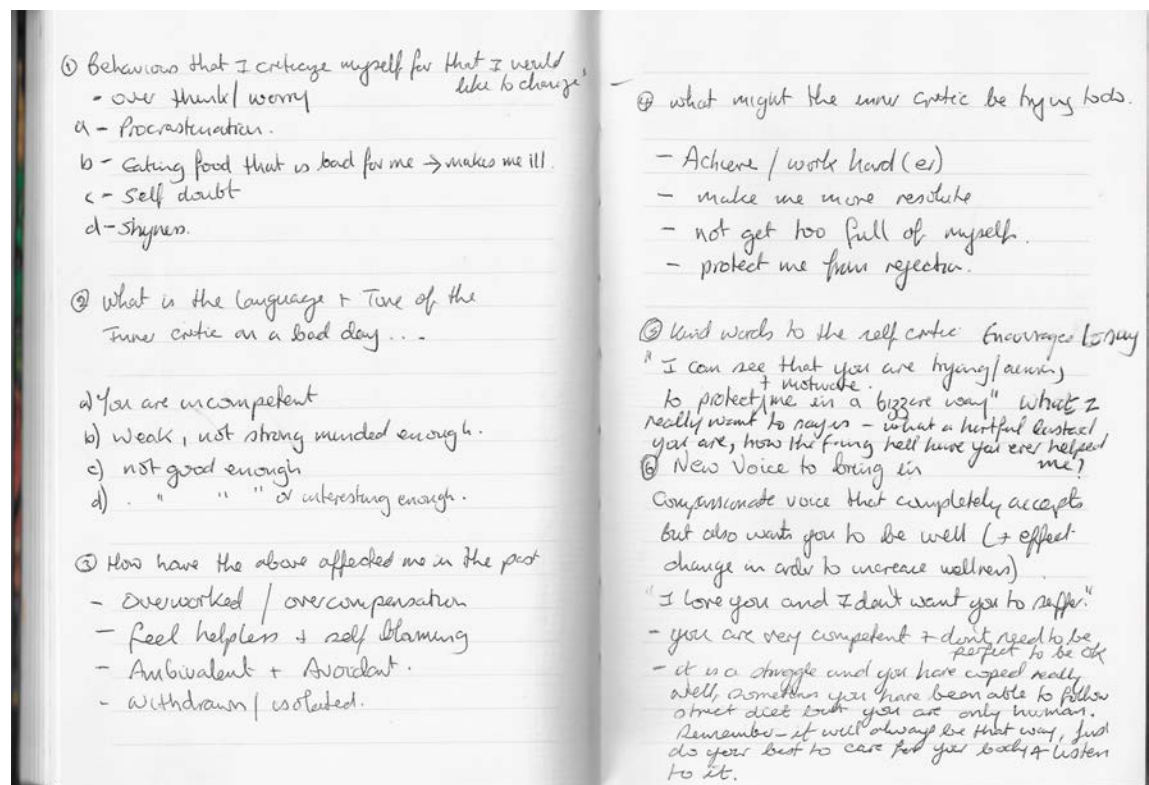 ① Behaviours that I criticize myself for that I would
like to change'
- over think / worry
a - Procrastination.
b - Eating food that is bad for me → makes me ill.
c - Self doubt
d - Shyness.
② What is the Language + Tone of the
Inner critic on a bad day . . .
a) You are incompetent
b) Weak, not strong minded enough.
c) not good enough
d) . " " " or interesting enough.
③ How have the above affected me in the past
- Overworked / overcompensation
- feel helpless + self blaming
- Ambivalent + Avoidant.
- Withdrawn / isolated.
④ what might the inner critic be trying to do.
- Achieve / work hard (er)
- make me more resolute
- not get too full of myself.
- protect me from rejection.
⑤ Kind words to the self critic. Encourages
"I can see that you are trying / aiming
+ motivate.
to protect me in a bizzare way" What I
really want to say is - what a hurtful bastard
you are, how the f-ing hell have you ever helped
me?
⑥ New Voice to bring in
Compassionate voice that completely accepts
but also wants you to be well (+ effect
change in order to increase wellness)
"I love you and I don't want you to suffer."
- you are very competent + don't need to be
perfect to be ok
- it is a struggle and you have coped really
well, sometimes you have been able to follow
strict diet but you are only human.
Remember - it will always be that way, just
do your best to care for your body + listen
to it.